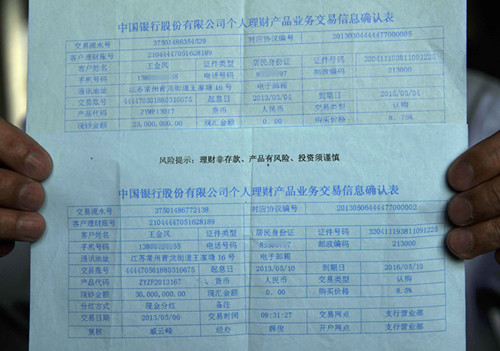 中国银行股份有限公司个人理财产品业务交易信息确认表
交易流水号 37503486354329 对应协议编号 20130504444477000005
客户理财账号 21044447051628189
客户姓名 王金凤 证件类型 居民身份证 证件号码
手机号码 电话号码 邮政编码 213000
通讯地址 江苏常州青龙街道王家塘16号 电子邮箱
交易账号 起息日 2013/05/04 到期日 2015/05/04
产品代码 货币 人民币 交易类型 认购
现钞金额 现汇金额 0.00 购买价格
风险提示:理财非存款、产品有风险、投资须谨慎
中国银行股份有限公司个人理财产品业务交易信息确认表
交易流水号 37501486772138 对应协议编号 20130506444477000002
客户理财账号 21044447051628189
客户姓名 王金凤 证件类型 居民身份证 证件号码
手机号码 电话号码 邮政编码 213000
通讯地址 江苏常州青龙街道王家塘16号 电子邮箱
交易账号 起息日 2013/05/10 到期日 2016/05/10
产品代码 ZYZF2013167 货币 人民币 交易类型 认购
现钞金额 30,000,000.00 现汇金额 0.00 购买价格
分红方式 现金分红 备注
交易日期 2013/05/06 交易时间 09:31:27 交易网点 支行营业部
复核 戚云峰 经办 薛俊 开户网点 支行营业部